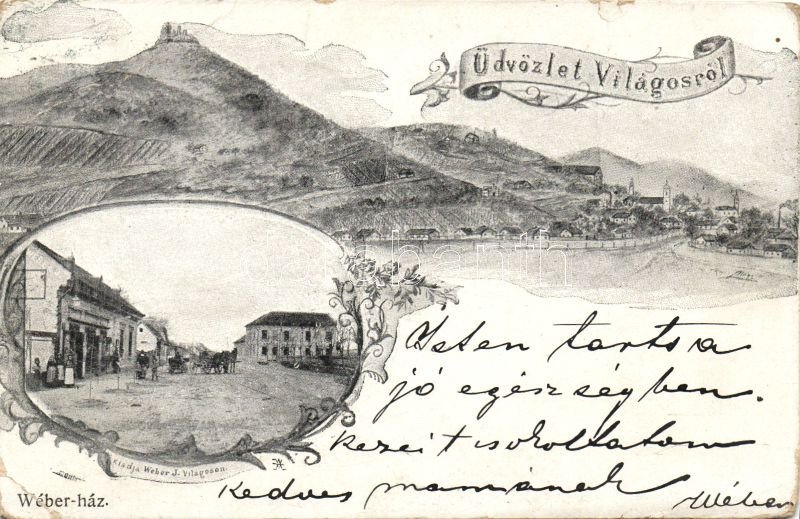 Üdvözlet Világosról
Isten tartsa
jó egészségben.
Kezeit csokoltatom
Kedves mamának
Wéber
Kiadja Weber J. Világoson.
Wéber-ház.